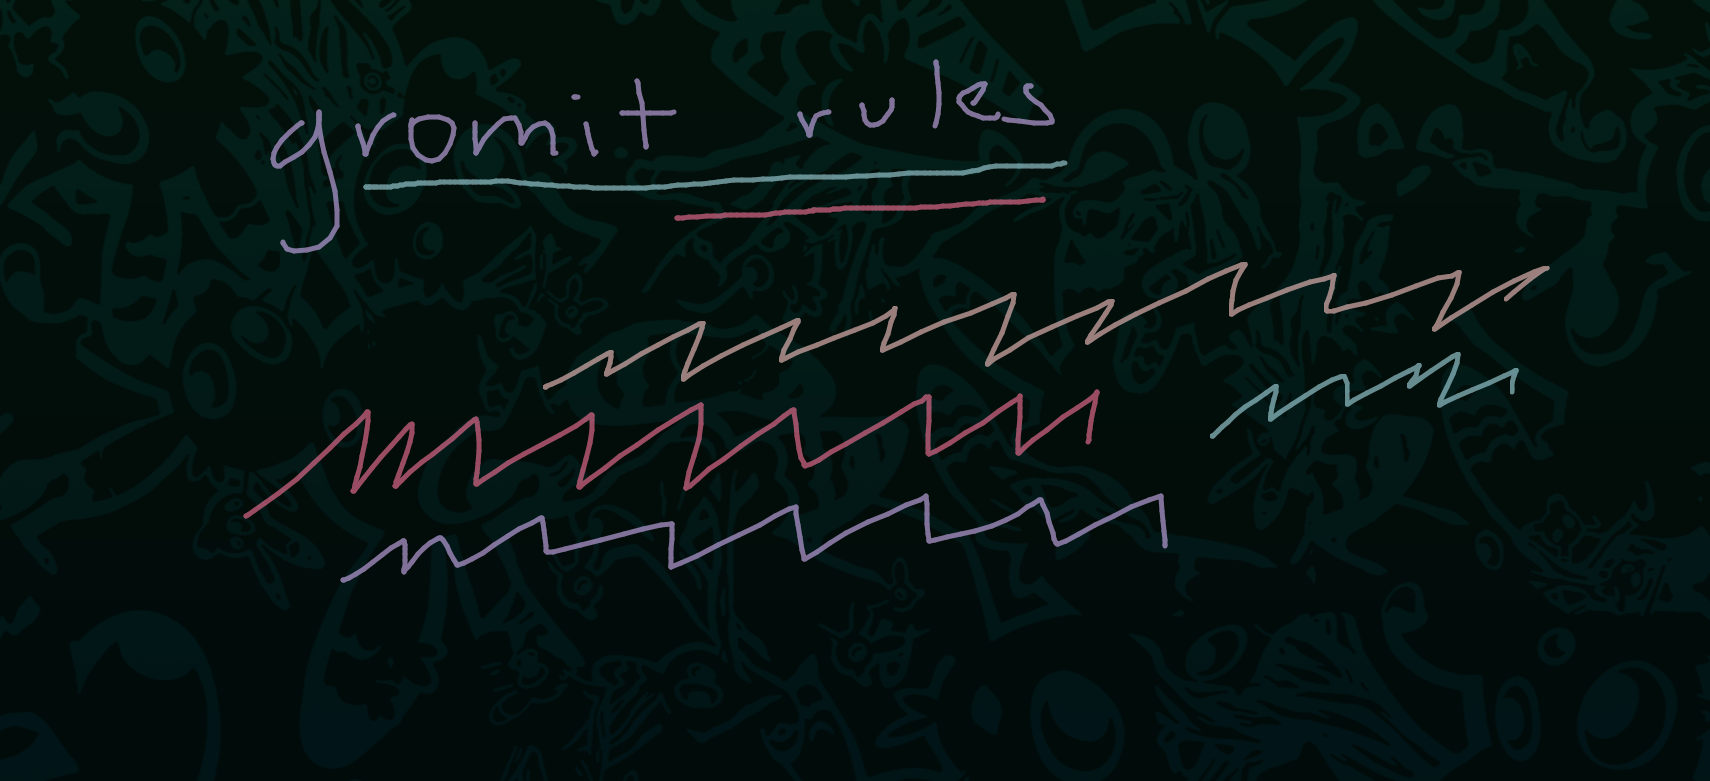 gromit rules